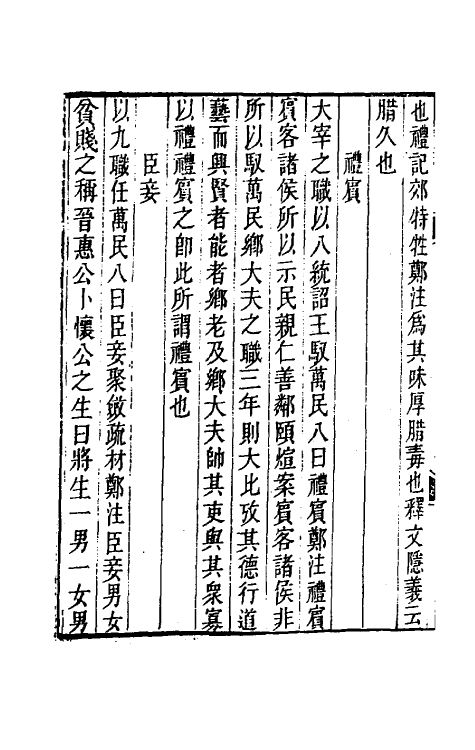 也禮記郊特牲鄭注爲其味厚腊毒也釋文隱義云
腊久也
禮賓
大宰之職以八統詔王馭萬民八曰禮賓鄭注禮賓
賓客諸侯所以示民親仁善鄰頤煊案賓客諸侯非
所以馭萬民鄉大夫之職三年則大比攷其德行道
藝而興賢者能者鄉老及鄉大夫帥其吏與其衆寡
以禮禮賓之卽此所謂禮賓也
臣妾
以九職任萬民八曰臣妾聚斂疏材鄭注臣妾男女
貧賤之稱晉惠公卜懷公之生曰將生一男一女男